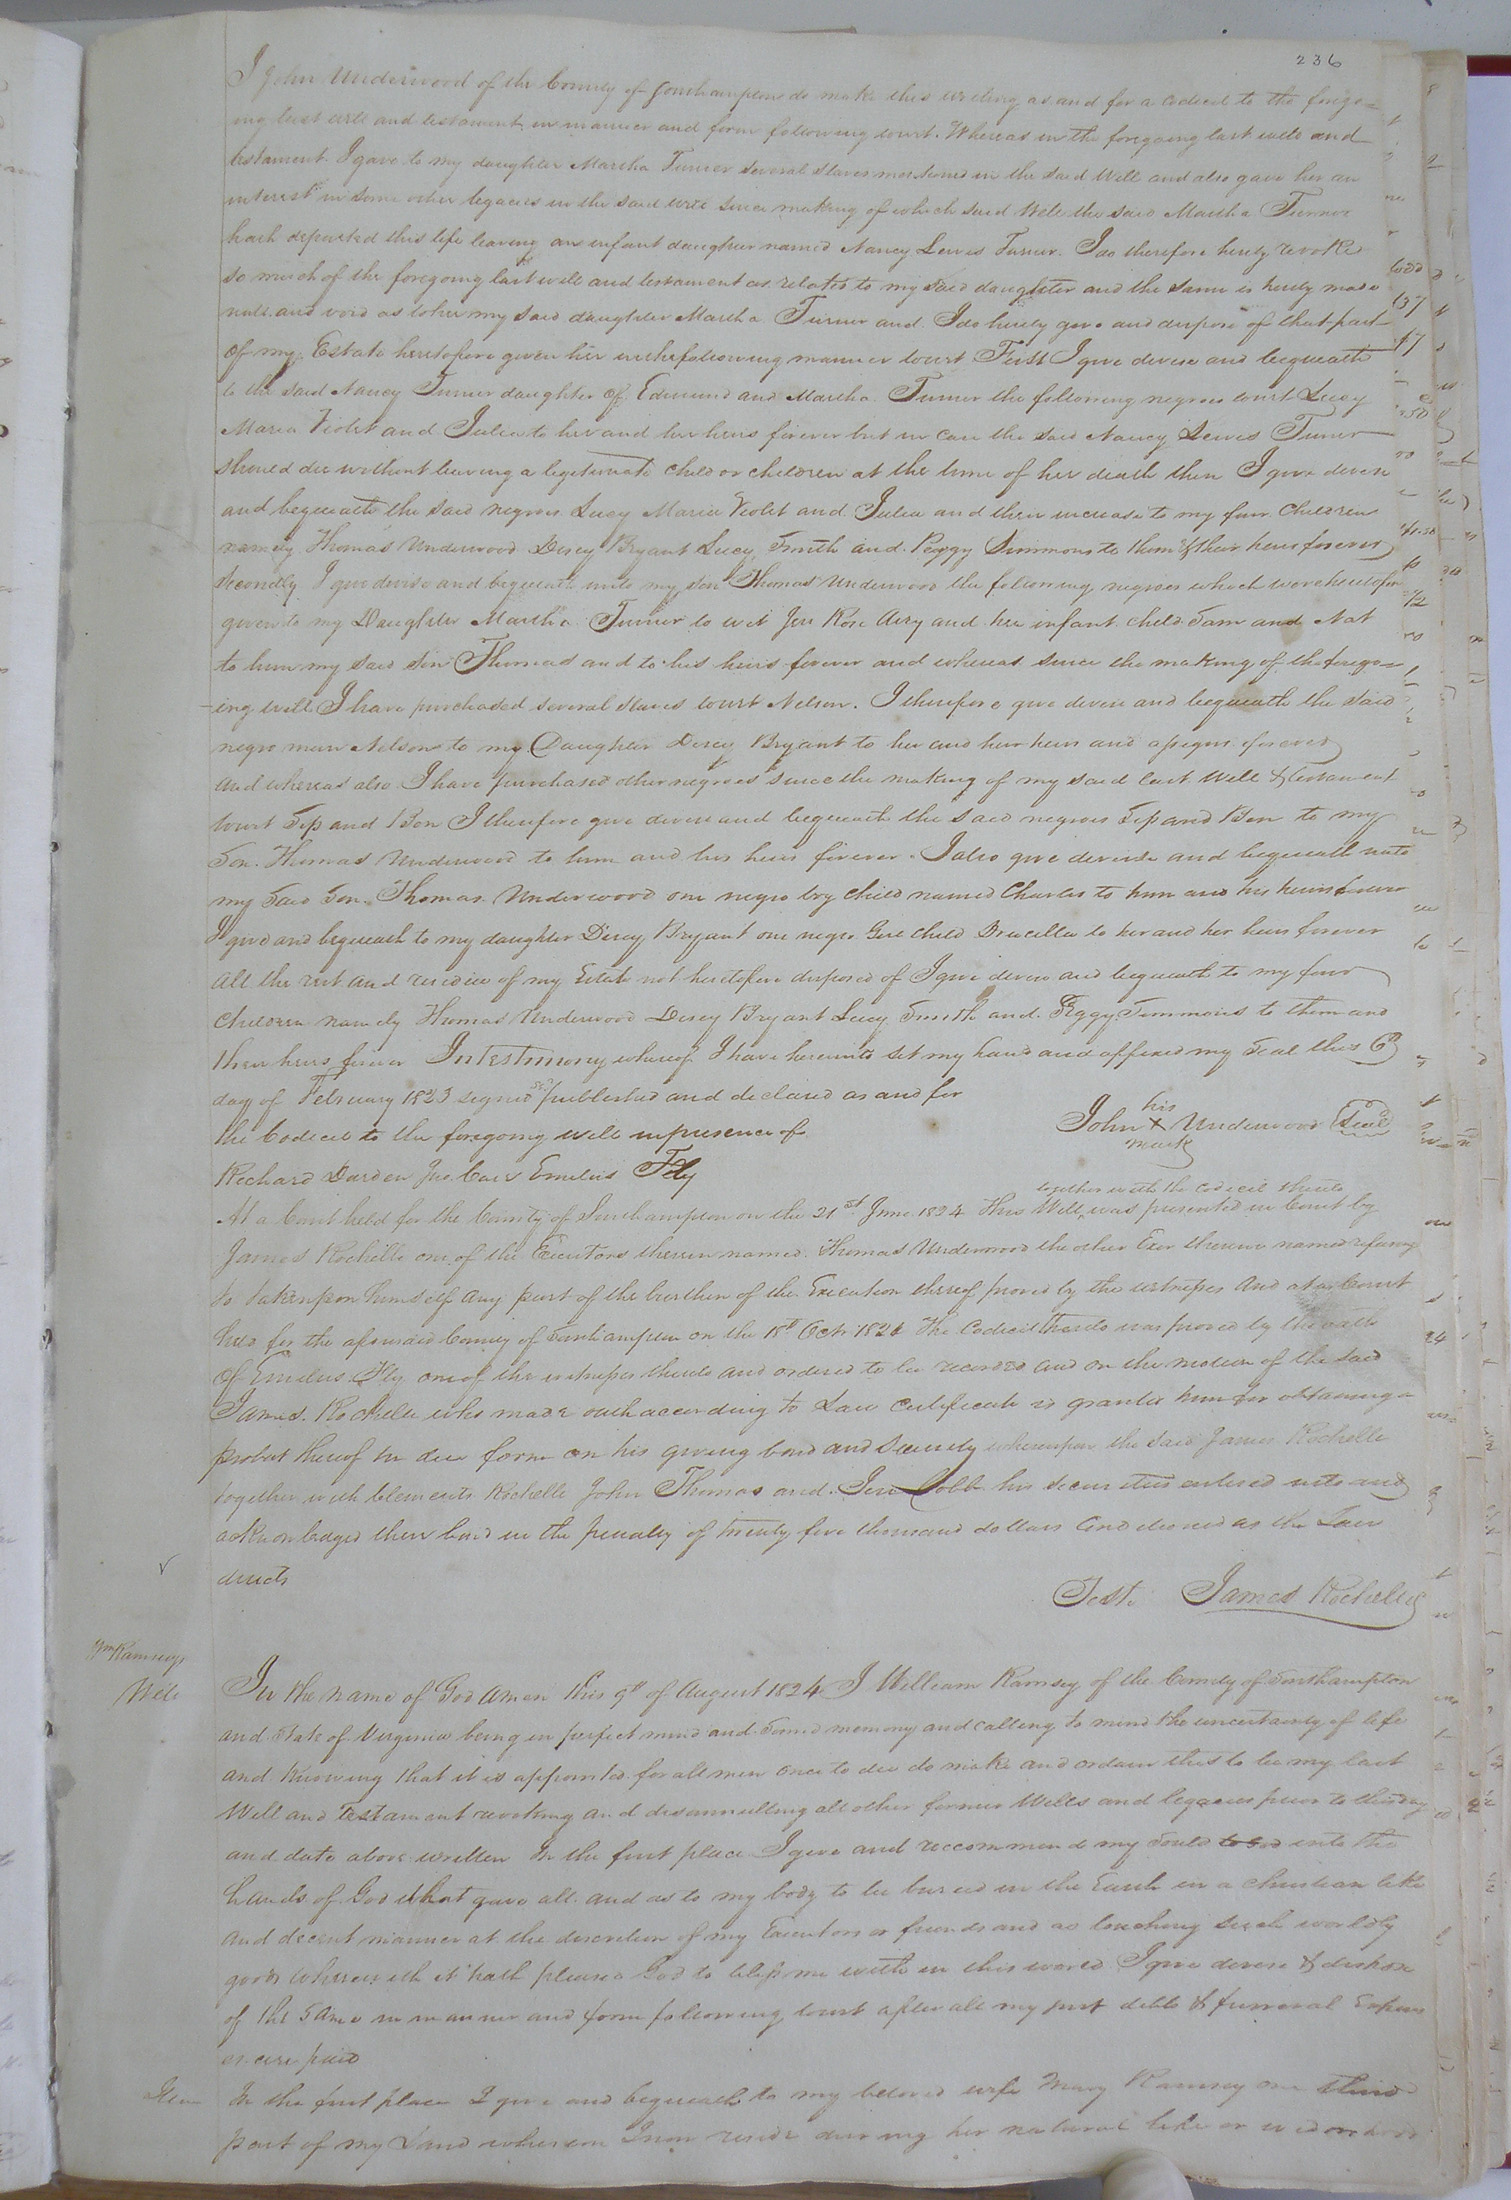 236
I John Underwood of the County of Southampton do make this writing as and for a codicil to the forego=
ing last will and testament in manner and form following towit. Whereas in the foregoing last will and
testament I gave to my daughter Martha Turner several slaves mentioned in the said Will and also gave her an
interest in some other legacies in the said will since making of which said Will the said Martha Turner
hath departed this life leaving an infant daughter named Nancy Lewis Turner. I do therefore hereby revoke
so much of the foregoing last will and testament as relates to my said daughter and the same is hereby made
null and void as to her my said daughter Martha Turner and I do hereby give and dispose of that part
of my Estate heretofore given her in the following manner towit First I give devise and bequeath
to the said Nancy Turner daughter of Edmund and Martha Turner the following negroes towit Lucy
Maria Violet and Julia to her and her heirs forever but in case the said Nancy Lewis Turner
should die without leaving a legitimate child or children at the time of her death then I give devise
and bequeath the said negroes Lucy Maria Violet and Julia and their increase to my four Children
namely Thomas Underwood Dicey Bryant Lucy Smith and Peggy Simmons to them & their heirs forever
Secondly I give devise and bequeath unto my son Thomas Underwood the following negroes which were heretofore
given to my Daughter Martha Turner to wit Jere Rose Airy and her infant child Sam and Nat
to him my said son Thomas and to his heirs forever and whereas since the making of the forego=
-ing will I have purchased several slaves towit Nelson. I therefore give devise and bequeath the said
negro man Nelson to my Daughter Dicey Bryant to her and her heirs and assigns forever
and whereas also I have purchased other negroes since the making of my said last Will & testament
towit Sip and Ben I therefore give devise and bequeath the said negroes Sip and Ben to my
Son Thomas Underwood to him and his heirs forever. I also give devise and bequeath unto
my said Son Thomas Underwood one negro boy child named Charles to him and his heirs forever
I give and bequeath to my daughter Dicey Bryant one negro Girl child Drucilla to her and her heirs forever
all the rest and residue of my Estate not heretofore disposed of I give devise and bequeath to my four
Children namely Thomas Underwood Dicey Bryant Lucy Smith and Peggy Simmons to them and
their heirs forever In testimony whereof I have hereunto set my hand and affixed my seal this 6th
day of February 1823 signed published and declared as and for
the Codicil to the foregoing will in presence of
his
John X Underwood Seal
mark
Richard Darden Jno. Carr Emelius Fly
together with the codicil thereto
At a Court held for the County of Southampton on the 21st June 1824 This Will was presented in Court by
James Rochelle one of the Executors therein named. Thomas Underwood the other Exor therein named refusing
to take upon himself any part of the burthen of the Execution thereof proved by the witnesses and at a Court
held for the aforesaid County of Southampton on the 18th Octr 1824 The Codicil thereto was proved by the oath
of Emelius Fly one of the witnesses thereto and ordered to be recorded and on the motion of the said
James Rochelle who made oath according to Law Certificate is granted him for obtaining a
probat thereof in due form on his giving bond and security whereupon the said James Rochelle
together with Clements Rochelle John Thomas and Jere Cobb his securities entered into and
acknowledged their bond in the penalty of twenty five thousand dollars conditioned as the Law
directs
Teste James Rochelle
Wm Ramseys
Will
In the name of God Amen this 9th of August 1824 I William Ramsey of the County of Southampton
and State of Virginia being in perfect mind and sound memory and calling to mind the uncertainty of life
and knowing that it is appointed for all men once to die do make and ordain this to be my last
Will and Testament revoking and disannulling all other former Wills and legacies prior to this day
and date above written In the first place I give and reccommend my Soul to God into the
hands of God that gave all and as to my body to be buried in the Earth in a christian like
and decent manner at the discretion of my Executors or friends and as touching such worldly
goods wherewith it hath pleased God to bless me with in this world I give devise & dispose
of the same in manner and form following towit after all my just debts & funeral Expens
es are paid
Item In the first place I give and bequeath to my beloved wife Mary Ramsey one third
part of my Land whereon I now reside during her natural life or widowhood